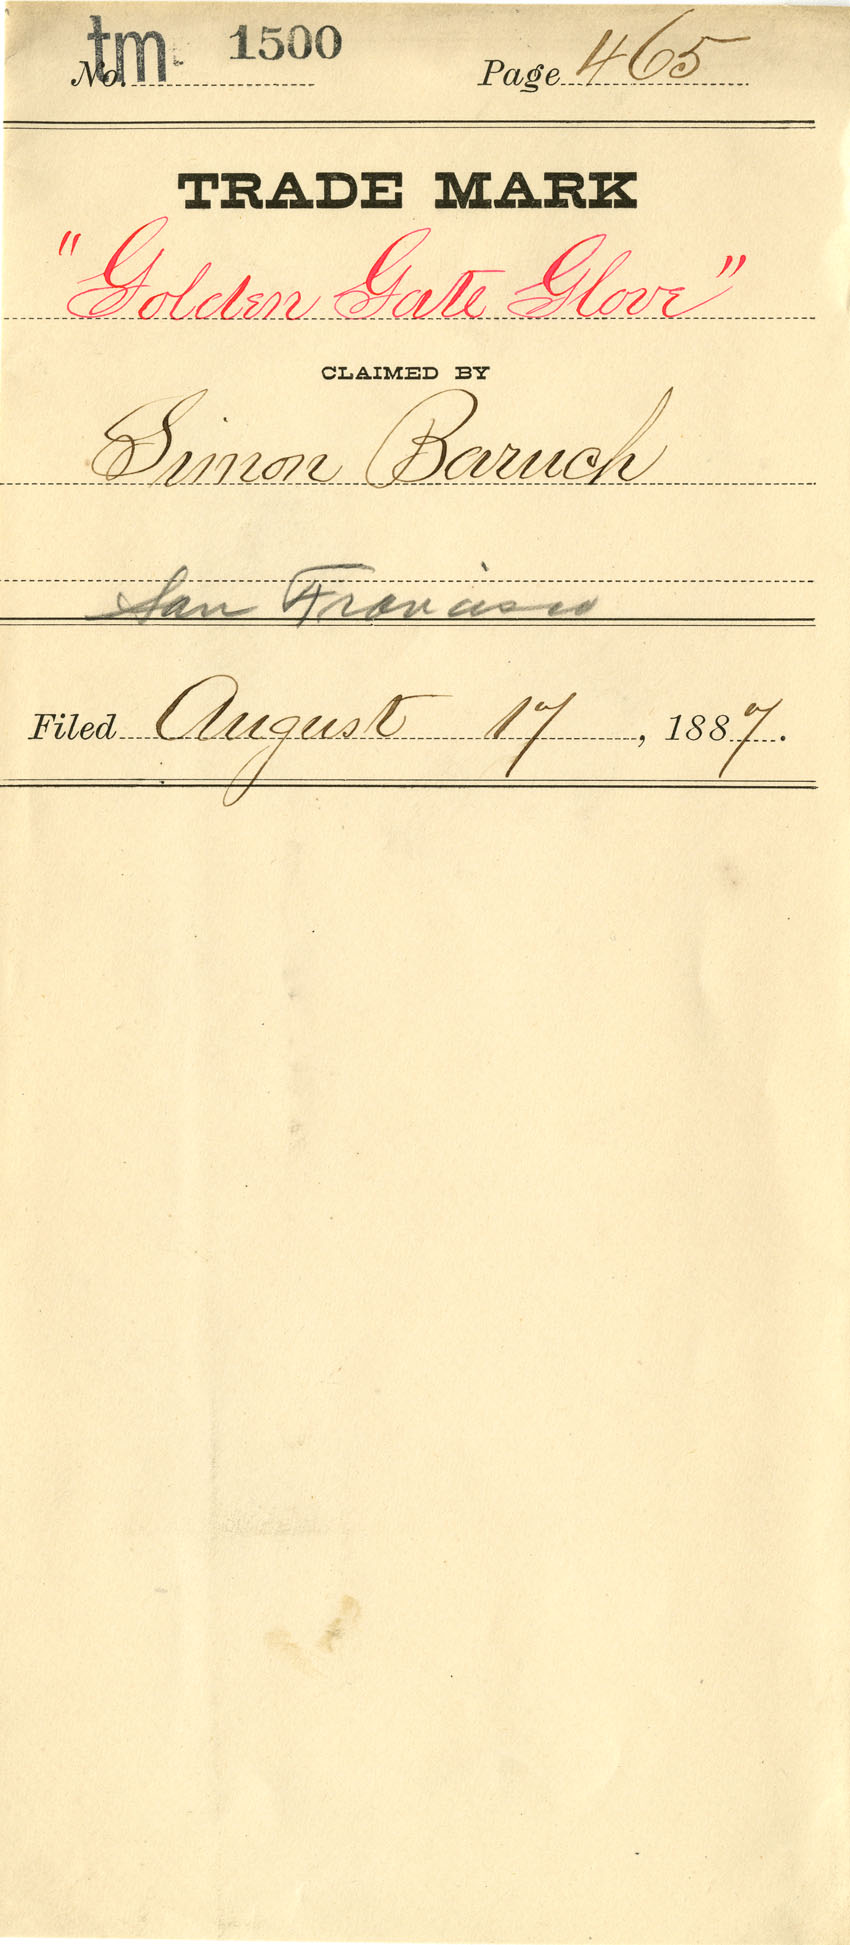 No. tm 1500 Page 465
TRADE MARK
"Golden Gate Glove"
CLAIMED BY
Simon Baruch
San Francisco
Filed August 17, 1887.